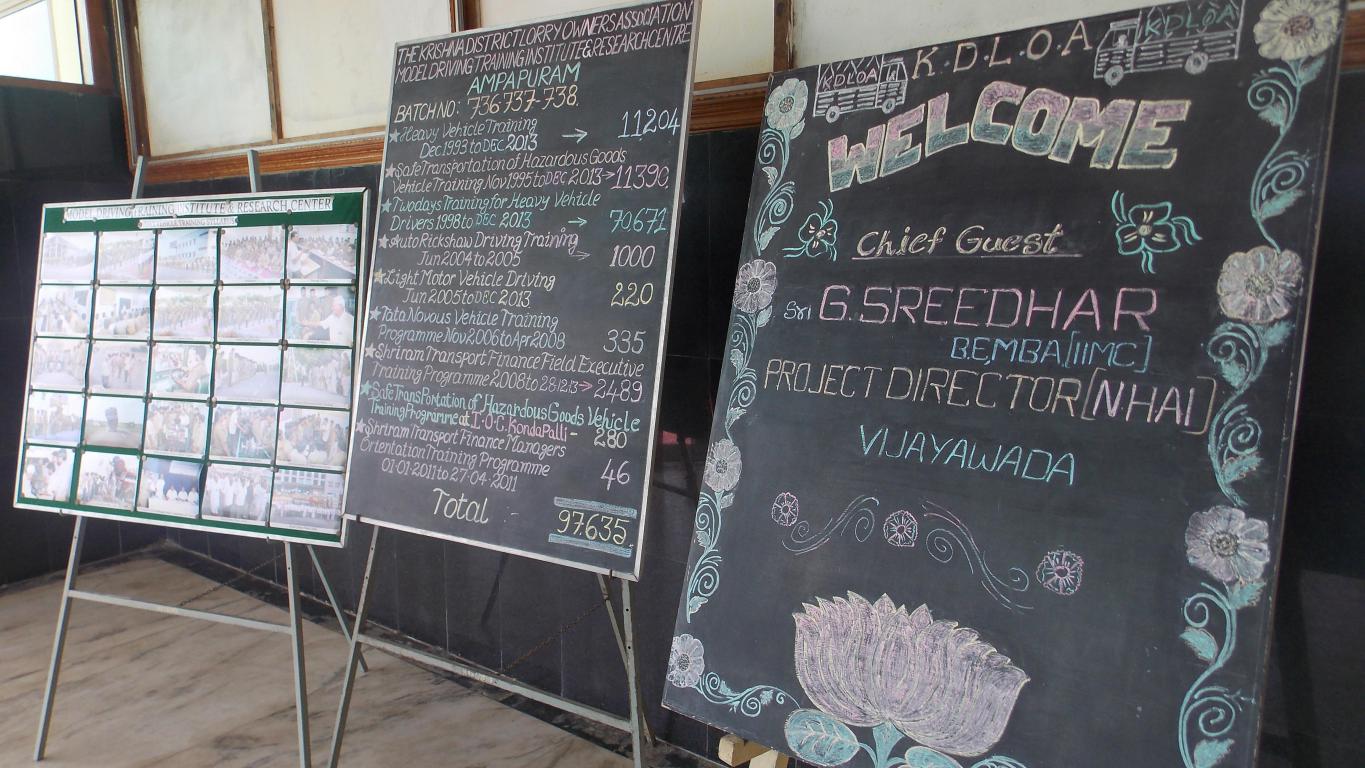 MODEL DRIVING TRAINING INSTITUTE & RESEARCH CENTER
TRAINING SYLLABUS
THE KRISHNA DISTRICT LORRY OWNERS ASSOCIATION
MODEL DRIVING TRAINING INSTITUTE & RESEARCH CENTRE
AMPAPURAM
BATCH NO: 736-737-738.
★Heavy Vehicle Training
Dec 1993 to DEC 2013 → 11204
★Safe Transportation of Hazardous Goods
Vehicle Training Nov 1995 to DEC 2013→11390.
★Twodays Training for Heavy Vehicle
Drivers 1998 to DEC 2013 → 70,671
★Auto Rickshaw Driving Training
Jun 2004 to 2005 → 1000
★Light Motor Vehicle Driving
Jun 2005 to DEC 2013 220
★Tata Novous Vehicle Training
Programme Nov 2006 to Apr 2008 335
★Shriram Transport Finance Field Executive
Training Programme 2008 to 28-12-13→2489
★Safe Transportation of Hazardous Goods Vehicle
Training Programme at I.O.C. Kondapalli - 280
★Shriram Transport Finance Managers
Orientation Training Programme
01-01-2011 to 27-04-2011 46
Total :- 97,635
K.D.L.O.A
KDLOA
KDLOA
WELCOME
Chief Guest
Sri G. SREEDHAR
B.E, MBA [IIMC]
PROJECT DIRECTOR [NHAI]
VIJAYAWADA